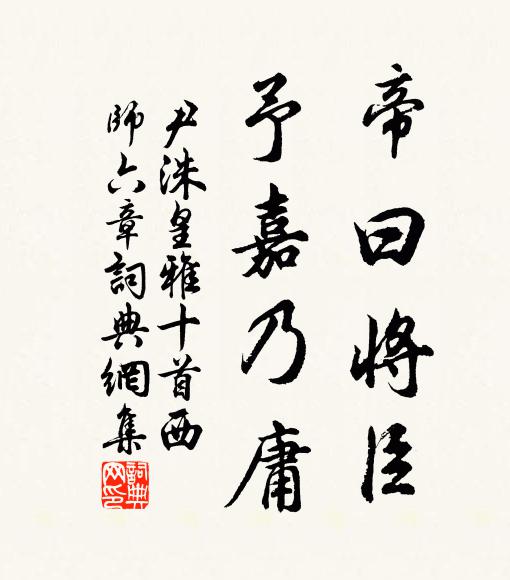 帝曰將臣
予嘉乃庸
尹洙皇雅十首西
師六章詞典網集
詞典网印